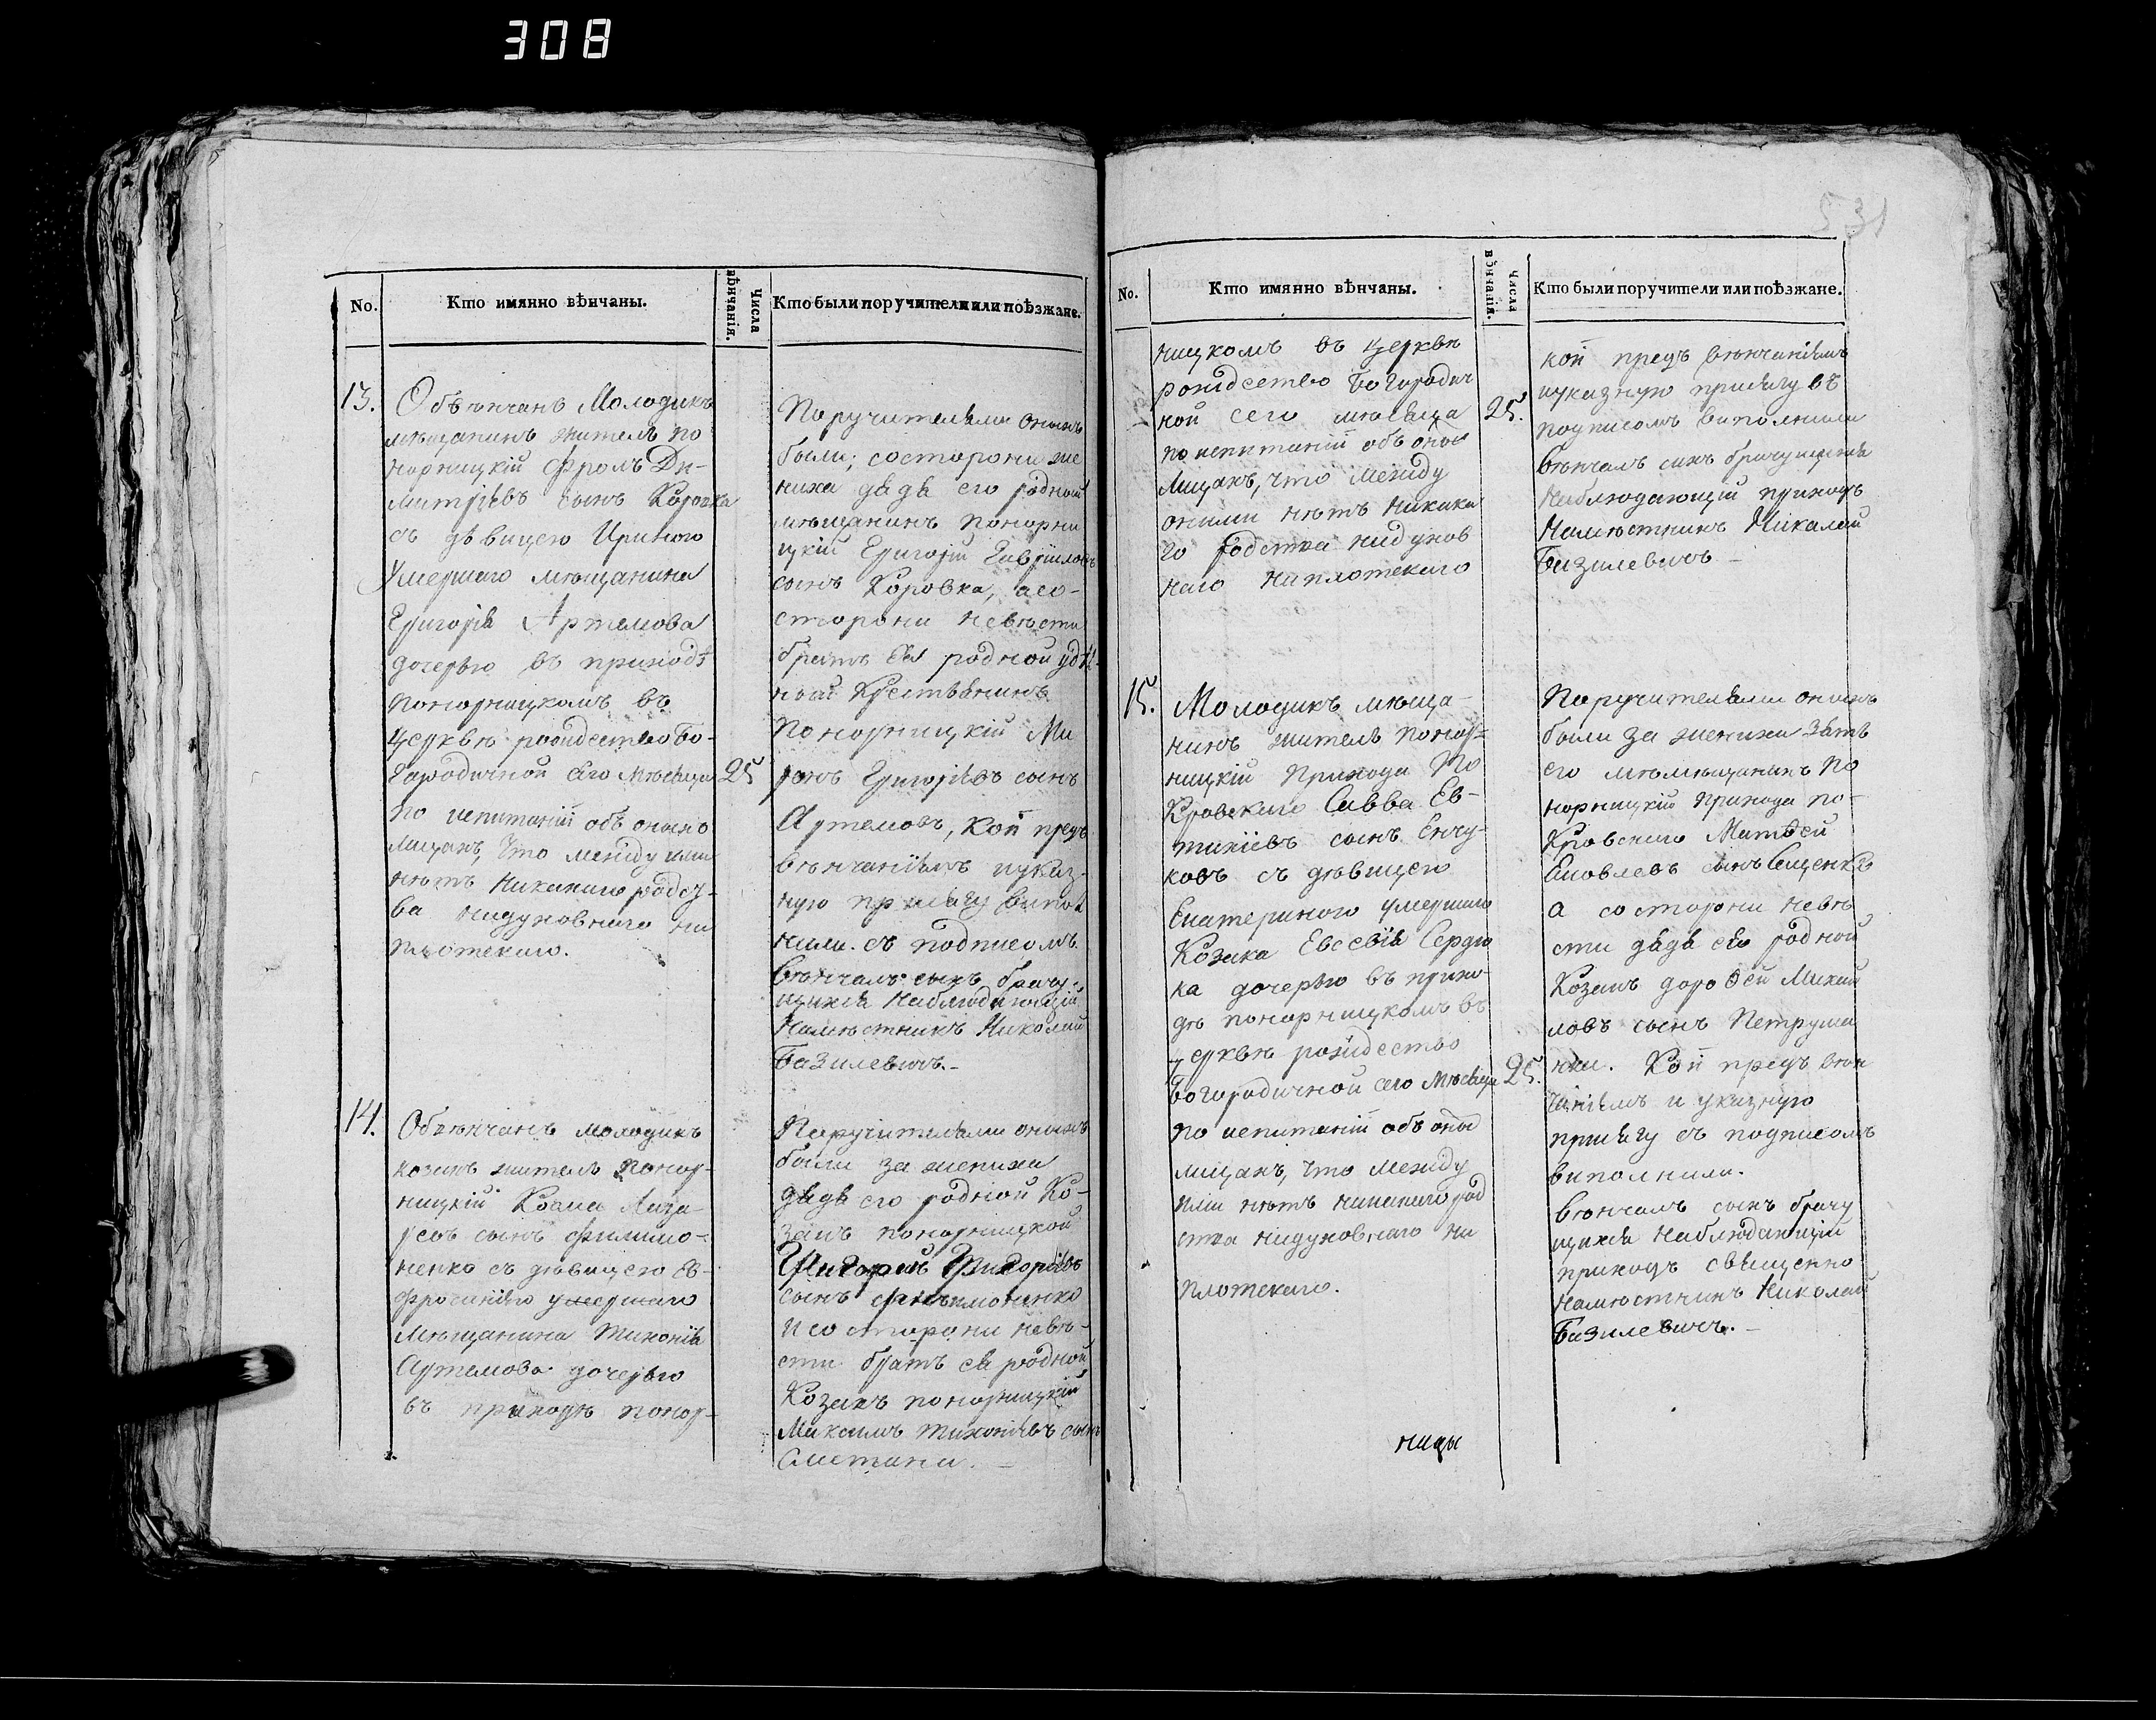 308
531
No.
Кто имянно вѣнчаны.
Числа вѣнчанія.
Кто были поручители или поѣзжане.
13.
Обвѣнчанъ Молодикъ
мѣщанинъ жителъ по
норницкій Фролъ Ди-
митріевъ сынъ Коровка
съ дѣвицею Ириною
умершаго мѣщанина
Григорія Артемова
дочерью въ приходѣ
понорницкомъ въ
церквѣ рождество Бо-
городичной сего мѣсяца
25
по испитаніи объ оныхъ
лицахъ, что между ими
нѣтъ никакого родст-
ва нидуховнаго ни
плотскаго.
Поручителями оныхъ
были; состорони же
ниха дядя его родный
мѣщанинъ понорни
цкій Григорій Гавріиловъ
сынъ Коровка, асо-
сторони невѣсти
братъ ея родной удѣл-
ный Крестьянинъ
Понорницкій Ми
ронъ Григоріевъ сынъ
Артемовъ, Кои предъ
вѣнчаніемъ иуказ-
ную присягу випол
нили. съ подписомъ.
Вѣнчалъ сихъ брачу-
щихся Наблюдающій
Намѣстникъ Николай
Базилевичъ.-
14.
Обвѣнчанъ молодикъ
козакъ жителъ понор-
ницкій Козма Лаза-
ревъ сынъ Филимо-
ненко съ дѣвицею Ев-
фросиніею умершаго
Мѣщанина Тихонія
Артемова дочерью
въ приходѣ понор-
Поручителями оныхъ
были за жениха
дядя его родной Ко-
закъ понорницкой
Григорій Григоріевъ
сынъ Филимоненко
исо сторони невѣ-
сти братъ ея родной
Козакъ понорницкій
Максимъ Тихоніевъ сынъ
Сметана. -
No.
Кто имянно вѣнчаны.
Числа вѣнчанія.
Кто были поручители или поѣзжане.
ницкомъ въ церквѣ
рождество Богородич
ной сего мѣсяца
25.
по испитаніи объ оныхъ
лицахъ, что между
оними нѣтъ никака
го родства нидухов
наго ниплотскаго
кои предъ вѣнчаніемъ
иуказную присягу въ
подписомъ виполнили
Вѣнчалъ сихъ брачущихся
Наблюдающій приходъ
Намѣстникъ Николай
Базилевичъ -
15.
Молодикъ мѣща-
нинъ жителъ понор-
ницкій прихода По
Кровскаго Савва Ев-
тихіевъ сынъ Енчу-
ковъ съ дѣвицею
Екатериною умершаго
Козака Евсевія Сердю
ка дочерью въ прихо-
дѣ понорницкомъ въ
церквѣ рождество
Богородичной сего Мѣсяца
25.
по испитаніи объ оныхъ
лицахъ, что между
ими нѣтъ никакого род
ства нидуховнаго ни
плотскаго.
Поручителями оныхъ
были за жениха зять
его мѣщанинъ По
норницкій прихода по-
Кровскаго Матѳей
Яковлевъ сынъ Сащенко
а состорони невѣ
сти дядя ея родной
Козакъ дороѳей Михай
ловъ сынъ Петруша
нка. Кои предъ вѣн
чаніемъ и указную
присягу съ подписомъ
виполнили.
Вѣнчалъ сихъ брачу
щихся Наблюдающій
приходъ священно
намѣстникъ Николай
Базилевичъ. -